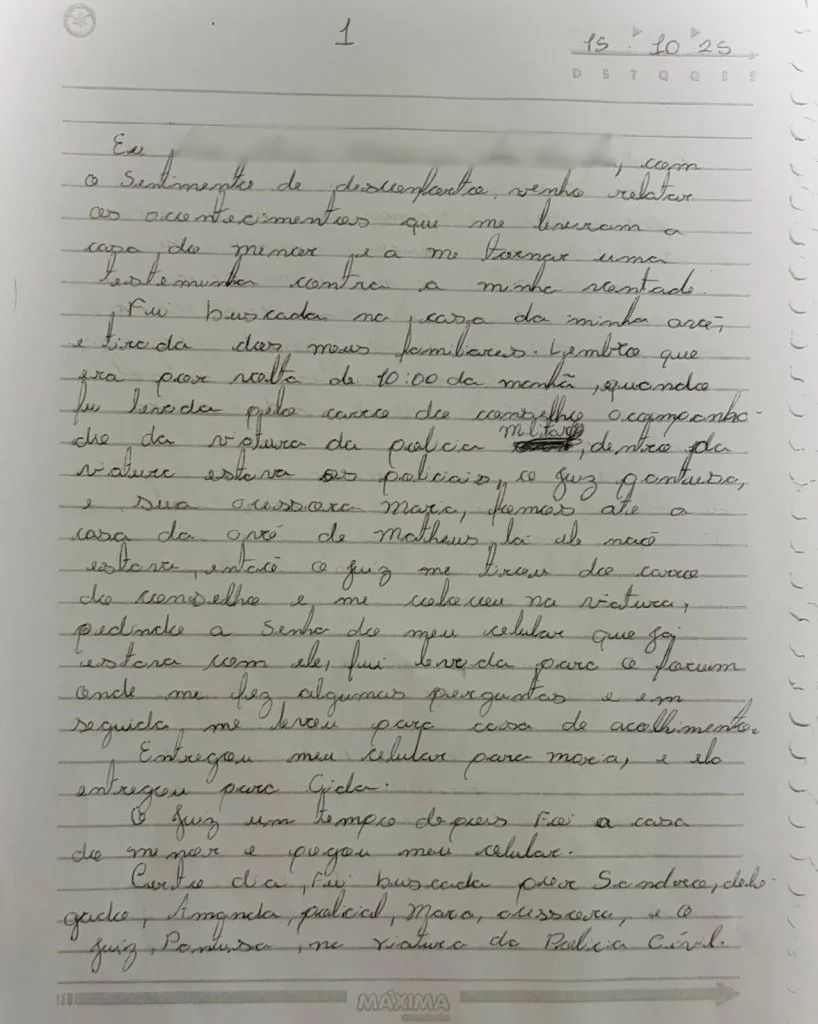 1
15 . 10 . 25
D S T Q Q S S
Eu , com
o sentimento de desconforto, venho relatar
os acontecimentos que me levaram a
casa do menor, e a me tornar uma
testemunha contra a minha vontade.
Fui buscada na casa da minha avó,
e tirada dos meus familiares. Lembro que
era por volta de 10:00 da manhã, quando
fui levada pelo carro do conselho acompanha-
do da viatura da policia militar, dentro da
viatura estava os policiais, o juiz pontusa,
e sua acessora Mara, fomos até a
casa da avó de Matheus, lá ele não
estava, então o juiz me tirou do carro
do conselho e me colocou na viatura,
pedindo a senha do meu celular que já
estava com ele, fui levada para o forum
onde me fez algumas perguntas e em
seguida, me levou para casa de acolhimento.
Entregou meu celular para maria, e ela
entregou para Cida.
O juiz um tempo depois Foi a casa
do menor e pegou meu celular.
Certo dia, Fui buscada por Sandro, dele-
gado, Amanda, policial, Mara, acessora, e o
juiz, Pontusa, na viatura da Policia Cívil.
MÁXIMA